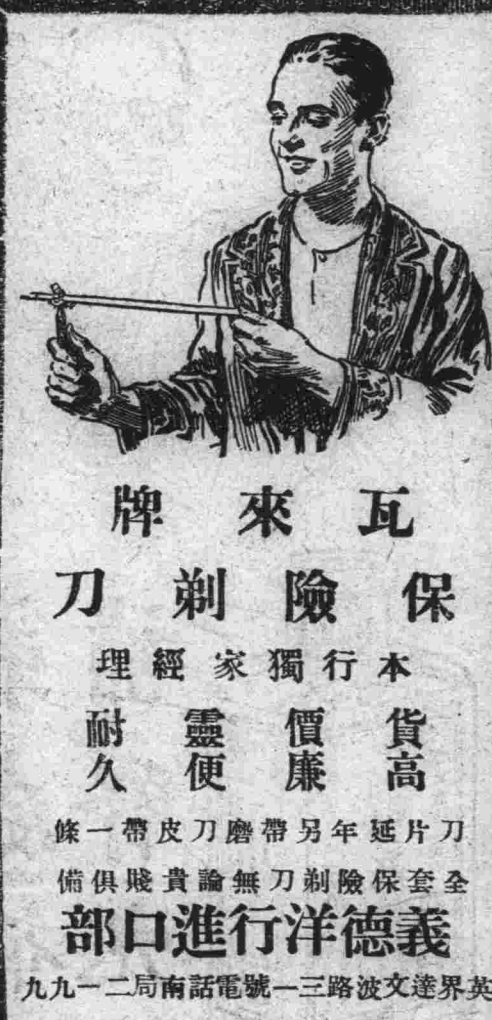 瓦來牌
保險剃刀
本行獨家經理
貨高
價廉
靈便
耐久
刀片延年另帶磨刀皮帶一條
全套保險剃刀無論貴賤俱備
義德洋行進口部
英界達文波路三一號電話南局二一九九